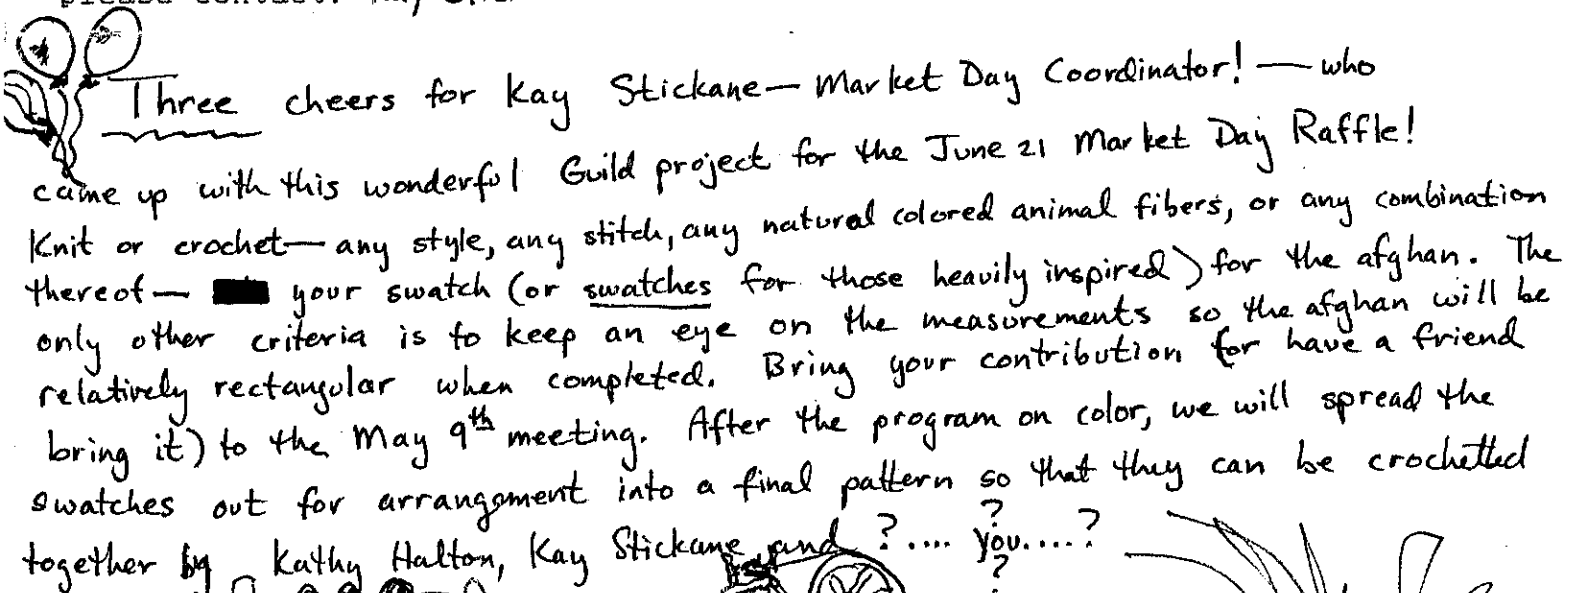 please contact: Kay
Three cheers for Kay Stickane — Market Day Coordinator! — who
came up with this wonderful Guild project for the June 21 Market Day Raffle!
Knit or crochet — any style, any stitch, any natural colored animal fibers, or any combination
thereof — your swatch (or swatches for those heavily inspired) for the afghan. The
only other criteria is to keep an eye on the measurements so the afghan will be
relatively rectangular when completed. Bring your contribution (or have a friend
bring it) to the May 9th meeting. After the program on color, we will spread the
swatches out for arrangement into a final pattern so that they can be crochetted
together by Kathy Halton, Kay Stickane and ?.... ? you....? ?